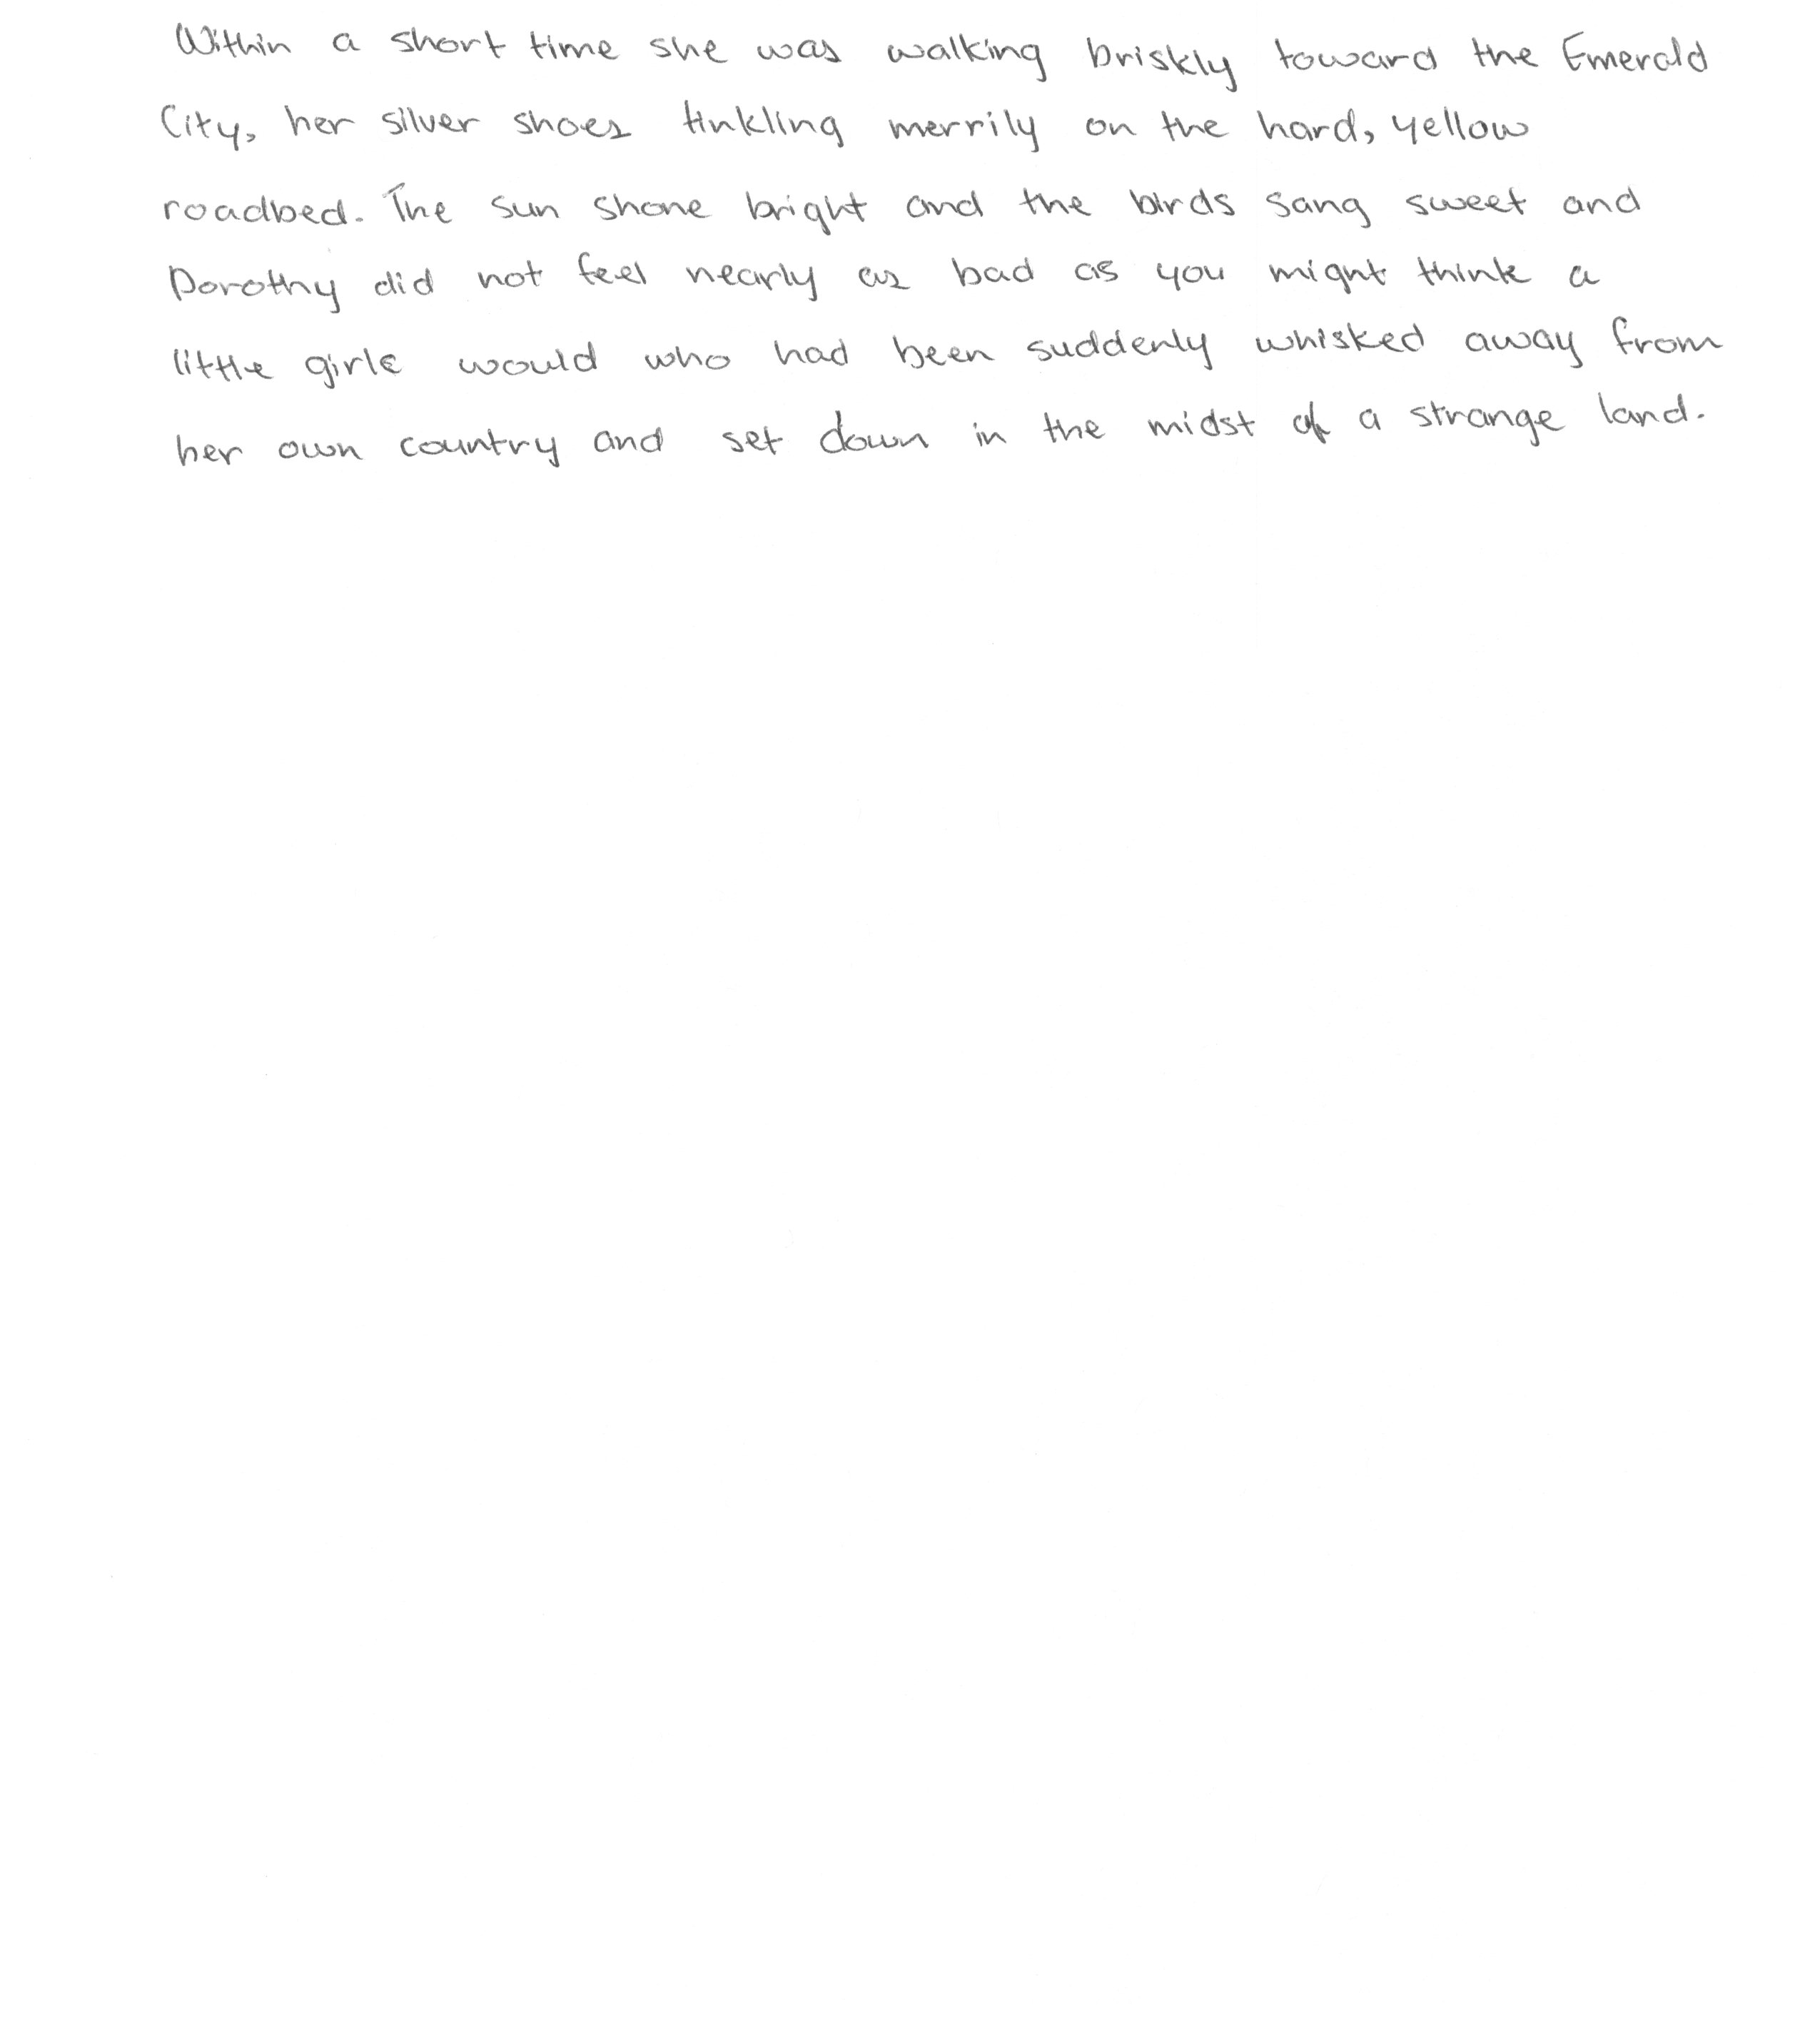 Within a short time she was walking briskly toward the Emerald
City, her silver shoes tinkling merrily on the hard, yellow
roadbed. The sun shone bright and the birds sang sweet and
Dorothy did not feel nearly as bad as you might think a
little girls would who had been suddenly whisked away from
her own country and set down in the midst of a strange land.